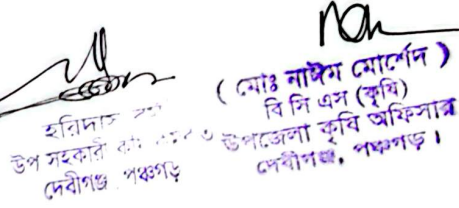 হরিদাস
উপ সহকারী
দেবীগঞ্জ পঞ্চগড়
( মোঃ নাঈম মোর্শেদ )
বি সি এস (কৃষি)
উপজেলা কৃষি অফিসার
দেবীগঞ্জ, পঞ্চগড়।